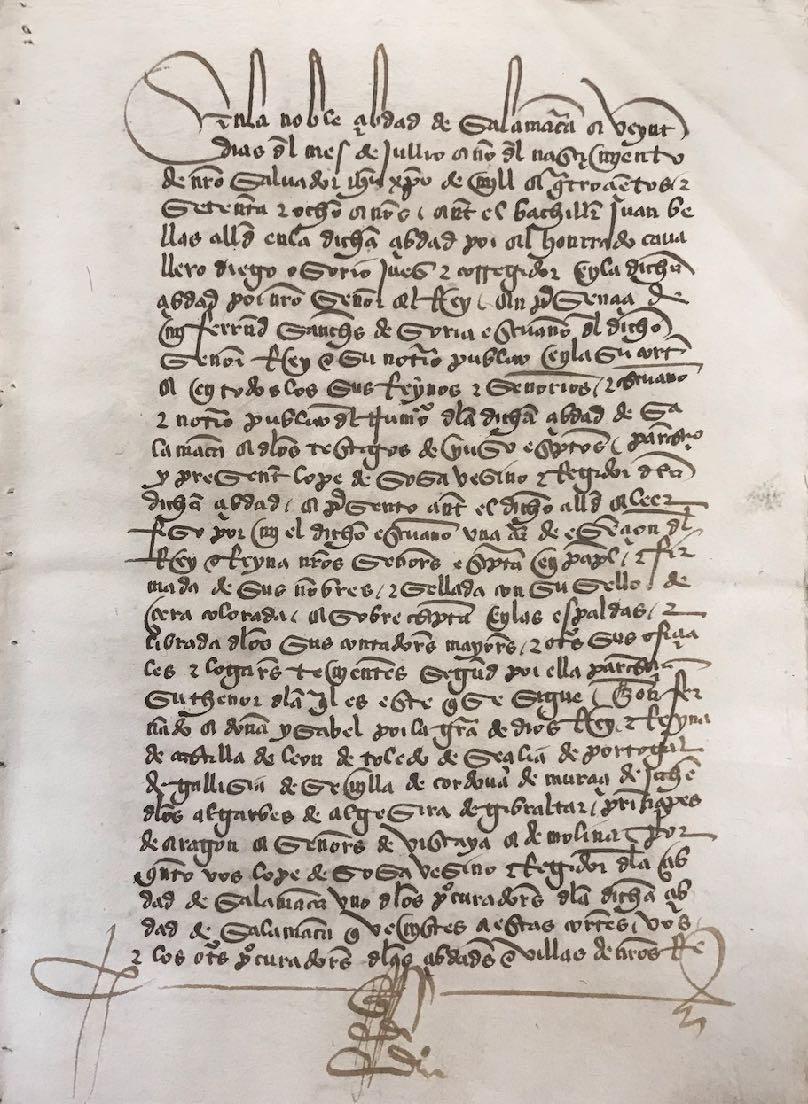 En la noble çibdad de Salamāca a veynte
dias dl mes de jullio año dl nasçimiento
de nr̄o Saluador ihū xp̄o de mill e q̄troçiētos e
Setenta e ocho años, ante el bachiller Juan be
llas alld en la dicha çibdad por el honrrado caua
llero diego osorio Jues e corregidor en la dicha
çibdad por nr̄o Señor el Rey, en p̄sençia de
mi ferrnd Sanches de Soria escriuano dl dicho
Señor Rey e Su notario publico en la Su corte
e en todos los Sus Reynos e Señorios, e escriuano
e notario publico dl numō dla dicha çibdad de Sa
lamāca e dlos testigos de yuso esc̄ptos, paresçio
y presente lope de SoSa vesino e Regidor dela
dicha çibdad, e p̄sento ante el dicho alld e leer
fiSo por mi el dicho escriuano vna c̄ta de eSençion dl
Rey e Reyna nr̄os Señores esc̄pta en papel, e fir
mada de Sus nōbres, e Sellada con Su Sello de
çera colorada, e Sobre esc̄pta en las espaldas, e
librada dlos Sus contadores mayores, e otros Sus ofiçia
les e logares tenientes Segūd por ella paresçia
Su thenor dla q̄l es este q̄ Se Sigue, Don fer
nādo e doña ysabel por la grā de dios Rey e Reyna
de castilla de leon de toledo de Seçilia de portogal
de gallisia de Seuilla de cordoua de murçia de Jahē
dlos algarbes de algeSira de gibraltar, prinçipes
de aragon e Señores de viscaya e de molina, por
q̄nto vos lope de SoSa vesino e Regidor dla çib
dad de Salamāca vno dlos p̄curadores dla dicha çib
dad de Salamāca q̄ venistes a estas cortes, vos
e los otros p̄curadores dlas çibdades e villas de nr̄os Re